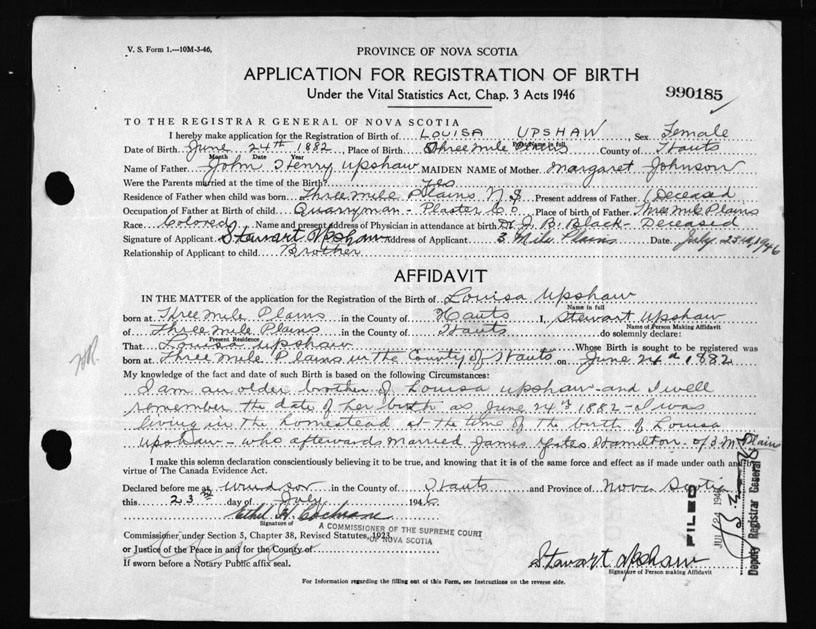 V. S. Form 1.—10M-3-46.
PROVINCE OF NOVA SCOTIA
APPLICATION FOR REGISTRATION OF BIRTH
Under the Vital Statistics Act, Chap. 3 Acts 1946
990185
TO THE REGISTRAR GENERAL OF NOVA SCOTIA
I hereby make application for the Registration of Birth of LOUISA UPSHAW Sex Female
Print name in full
Date of Birth June 24th 1882, Place of Birth Three Mile Plains County of Hauts
Month Date Year
Name of Father John Henry Upshaw MAIDEN NAME of Mother Margaret Johnson
Were the Parents married at the time of the Birth? Yes
Residence of Father when child was born Three Mile Plains N.S. Present address of Father (Deceased
Occupation of Father at Birth of child Quarryman - Plaster Co. Place of birth of Father Three Mile Plains
Race Colored Name and present address of Physician in attendance at birth Dr J. B. Black - Deceased
Signature of Applicant Stewart Upshaw Address of Applicant 3 Mile Plains Date July 23rd, 1946
Relationship of Applicant to child Brother
AFFIDAVIT
IN THE MATTER of the application for the Registration of the Birth of Louisa Upshaw
Name in full
born at Three Mile Plains in the County of Hauts I, Stewart Upshaw
Name of Person Making Affidavit
of Three Mile Plains in the County of Hauts do solemnly declare:
Present Residence
That Louisa Upshaw Whose Birth is sought to be registered was
born at Three Mile Plains in the County of Hauts on June 24th 1882
My knowledge of the fact and date of such Birth is based on the following Circumstances:
I am an older brother of Louisa Upshaw - and I well
remember the date of her birth as June 24th 1882 - I was
living in the homestead at the time of the birth of Louisa
Upshaw - who afterwards married James Yates Hamilton of 3 M Plains
I make this solemn declaration conscientiously believing it to be true, and knowing that it is of the same force and effect as if made under oath and in
virtue of The Canada Evidence Act.
Declared before me at Windsor in the County of Hauts and Province of Nova Scotia
this 23rd day of July 1946
Ethel H. Cochrane
Signature of
A COMMISSIONER OF THE SUPREME COURT
OF NOVA SCOTIA
Commissioner under Section 5, Chapter 38, Revised Statutes, 1923
or Justice of the Peace in and for the County of
If sworn before a Notary Public affix seal.
Stewart Upshaw
Signature of Person making Affidavit
For Information regarding the filling out of this Form, see Instructions on the reverse side.
FILED
Deputy Registrar General